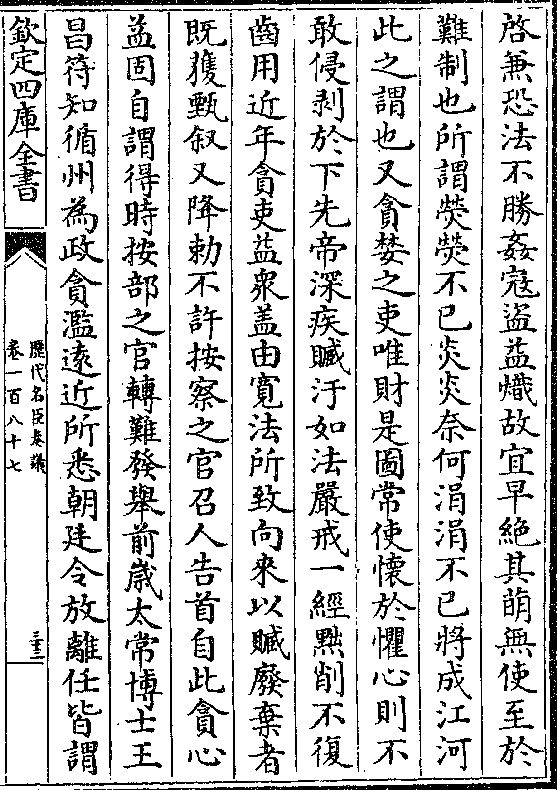 啓兼恐法不勝姦寇盜益熾故宜早絶其萌無使至於
難制也所謂熒熒不已炎炎奈何涓涓不已將成江河
此之謂也又貪婪之吏唯財是圖常使懷於懼心則不
敢侵剥於下先帝深疾贓汙如法嚴戒一經㸃削不復
齒用近年貪吏益衆盖由寛法所致向來以贓廢棄者
既獲甄叙又降勅不許按察之官召人告首自此貪心
益固自謂得時按部之官轉難發舉前嵗太常博士王
昌符知循州為政貪濫逺近所悉朝廷令放離任皆謂
欽定四庫全書
歴代名臣奏議
卷一百八十七
三十二